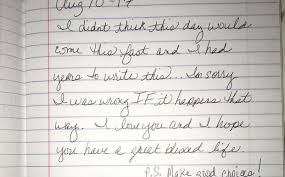 Aug 10-17
I didnt think this day would
come this fast and I had
years to write this... So sorry
I was wrong IF it happens that
way. I love you and I hope
you have a great blessed life.
P.S. Make good choices!